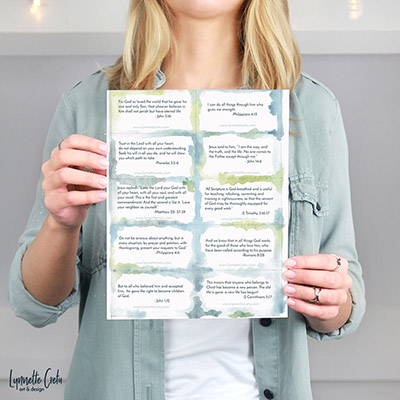 For God so loved the world that he gave his
one and only Son, that whoever believes in
him shall not perish but have eternal life.
John 3:16
I can do all things through him who
gives me strength.
-Philippians 4:13
Trust in the Lord with all your heart,
do not depend on your own understanding.
Seek his will in all you do, and he will show
you which path to take.
-Proverbs 3:5-6
Jesus said to him, "I am the way, and
the truth, and the life. No one comes to
the Father except through me."
John 14:6
Jesus replied: "Love the Lord your God with
all your heart, with all your soul, and with all
your mind. This is the first and greatest
commandment. And the second is like it: Love
your neighbor as yourself."
Matthew 22: 37-39
"All Scripture is God-breathed and is useful
for teaching, rebuking, correcting and
training in righteousness, so that the servant
of God may be thoroughly equipped for
every good work."
2 Timothy 3:16-17
Do not be anxious about anything, but in
every situation, by prayer and petition, with
thanksgiving, present your requests to God.
-Philippians 4:6
And we know that in all things God works
for the good of those who love him, who
have been called according to his purpose.
-Romans 8:28
But to all who believed him and accepted
him, he gave the right to become children
of God.
John 1:12
This means that anyone who belongs to
Christ has become a new person. The old
life is gone; a new life has begun!
-2 Corinthians 5:17
Lynnette Celia
art & design